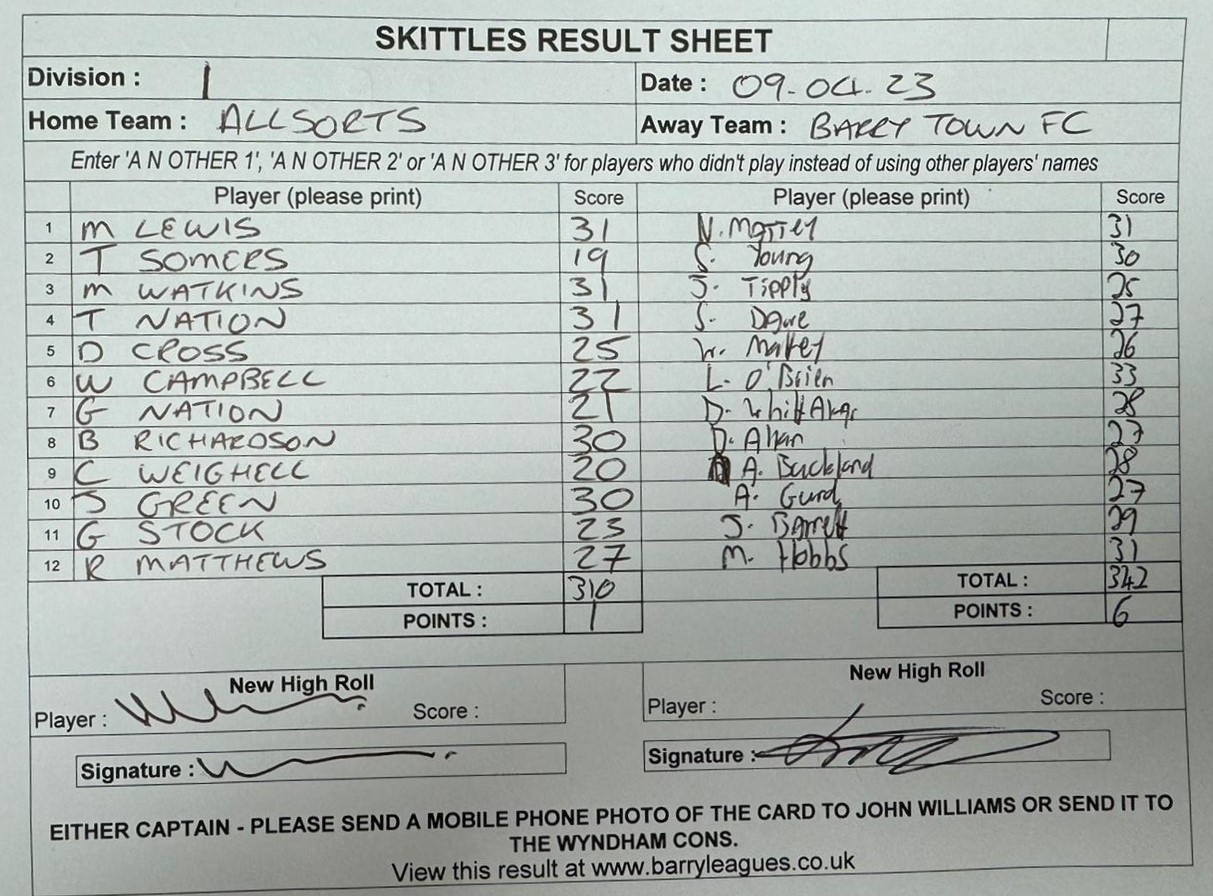 SKITTLES RESULT SHEET
Division : 1 Date : 09-04-23
Home Team : ALLSORTS Away Team : BARRY TOWN FC
Enter 'A N OTHER 1', 'A N OTHER 2' or 'A N OTHER 3' for players who didn't play instead of using other players' names
Player (please print) Score Player (please print) Score
1 M LEWIS 31 N. 31
2 T SOMERS 19 S. Young 30
3 M WATKINS 31 J. Tipply 25
4 T NATION 31 S. Dawe 27
5 D CROSS 25 26
6 W CAMPBELL 22 L. O'Brien 33
7 G NATION 21 D. 28
8 B RICHARDSON 30 D. 27
9 C WEIGHELL 20 A. Buckland 28
10 S GREEN 30 A. Gurd 27
11 G STOCK 23 J. Barrett 29
12 R MATTHEWS 27 M. Hobbs 31
TOTAL : 310 TOTAL : 342
POINTS : 1 POINTS : 6
New High Roll New High Roll
Player : Score : Player : Score :
Signature : Signature :
EITHER CAPTAIN - PLEASE SEND A MOBILE PHONE PHOTO OF THE CARD TO JOHN WILLIAMS OR SEND IT TO
THE WYNDHAM CONS.
View this result at www.barryleagues.co.uk